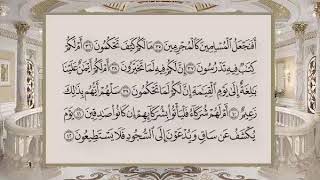 أَفَنَجْعَلُ ٱلْمُسْلِمِينَ كَٱلْمُجْرِمِينَ ٣٥ مَا لَكُمْ كَيْفَ تَحْكُمُونَ ٣٦ أَمْ لَكُمْ
كِتَٰبٌ فِيهِ تَدْرُسُونَ ٣٧ إِنَّ لَكُمْ فِيهِ لَمَا تَخَيَّرُونَ ٣٨ أَمْ لَكُمْ أَيْمَٰنٌ عَلَيْنَا
بَٰلِغَةٌ إِلَىٰ يَوْمِ ٱلْقِيَٰمَةِ إِنَّ لَكُمْ لَمَا تَحْكُمُونَ ٣٩ سَلْهُمْ أَيُّهُم بِذَٰلِكَ
زَعِيمٌ ٤٠ أَمْ لَهُمْ شُرَكَآءُ فَلْيَأْتُوا۟ بِشُرَكَآئِهِمْ إِن كَانُوا۟ صَٰدِقِينَ ٤١ يَوْمَ
يُكْشَفُ عَن سَاقٍ وَيُدْعَوْنَ إِلَى ٱلسُّجُودِ فَلَا يَسْتَطِيعُونَ ٤٢